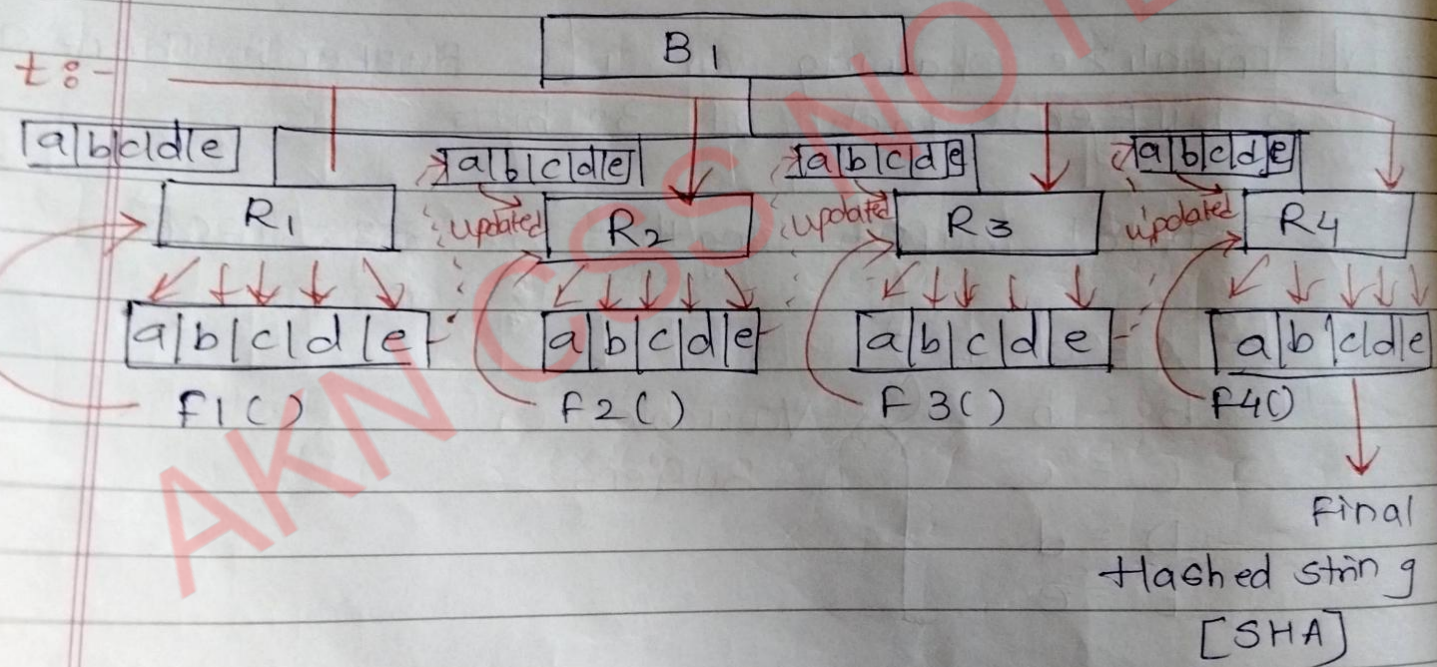 B1
t:-
a|b|c|d|e
a|b|c|d|e
a|b|c|d|e
a|b|c|d|e
R1
updated
R2
updated
R3
updated
R4
a|b|c|d|e
a|b|c|d|e
a|b|c|d|e
a|b|c|d|e
F1()
F2()
F3()
F4()
Final
Hashed string
[SHA]
AKN CSS NOTE